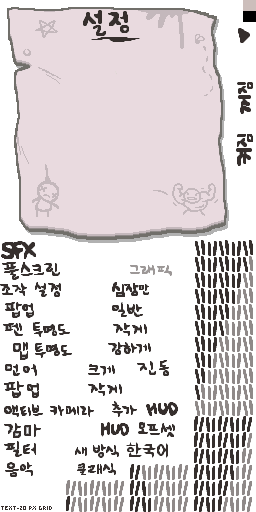 설정
SFX
풀스크린 그래픽
조작 설정 심장만
팝업 일반
펜 투명도 작게
맵 투명도 강하게
언어 크게 진동
팝업 작게
액티브 카메라 추가 HUD
감마 HUD 오프셋
필터 새 방식 한국어
음악 클래식
TEXT-20 PX GRID